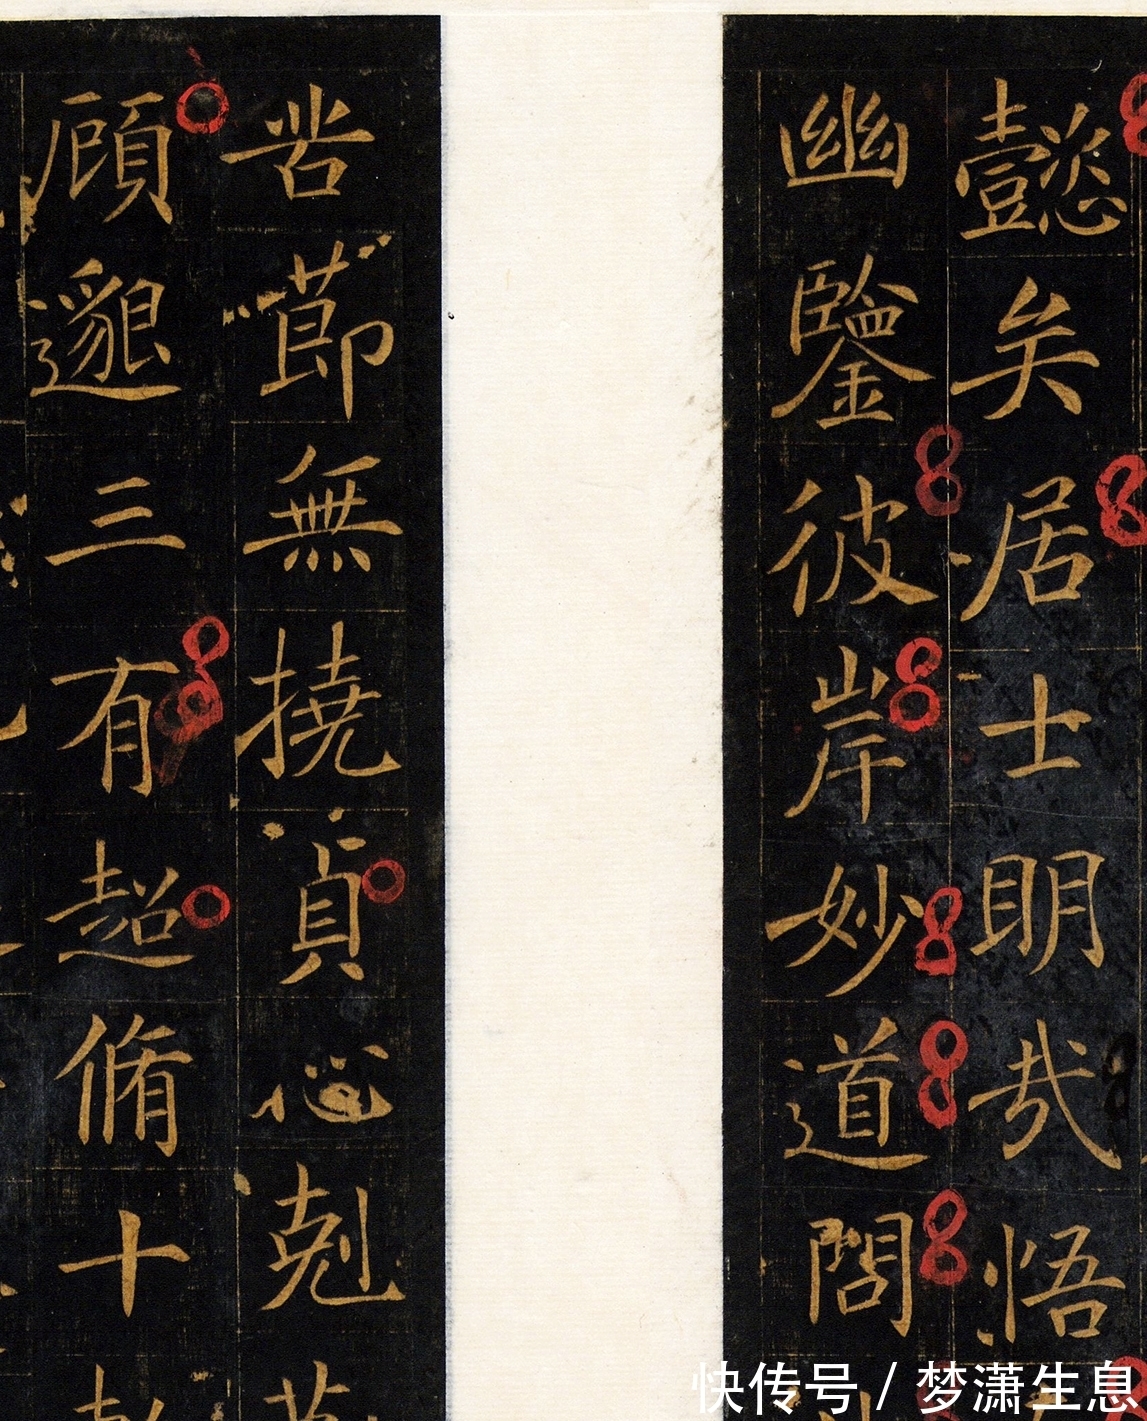 懿矣居士明哉悟
幽鑒彼岸妙道閻
苦節無撓貞心剋
顧邈三有超脩十
快传号 / 梦潇生息